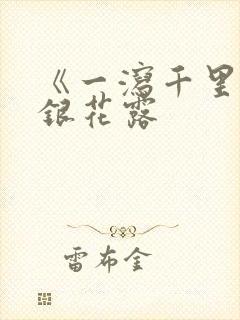 《一瀉千里
銀花露
雷布金